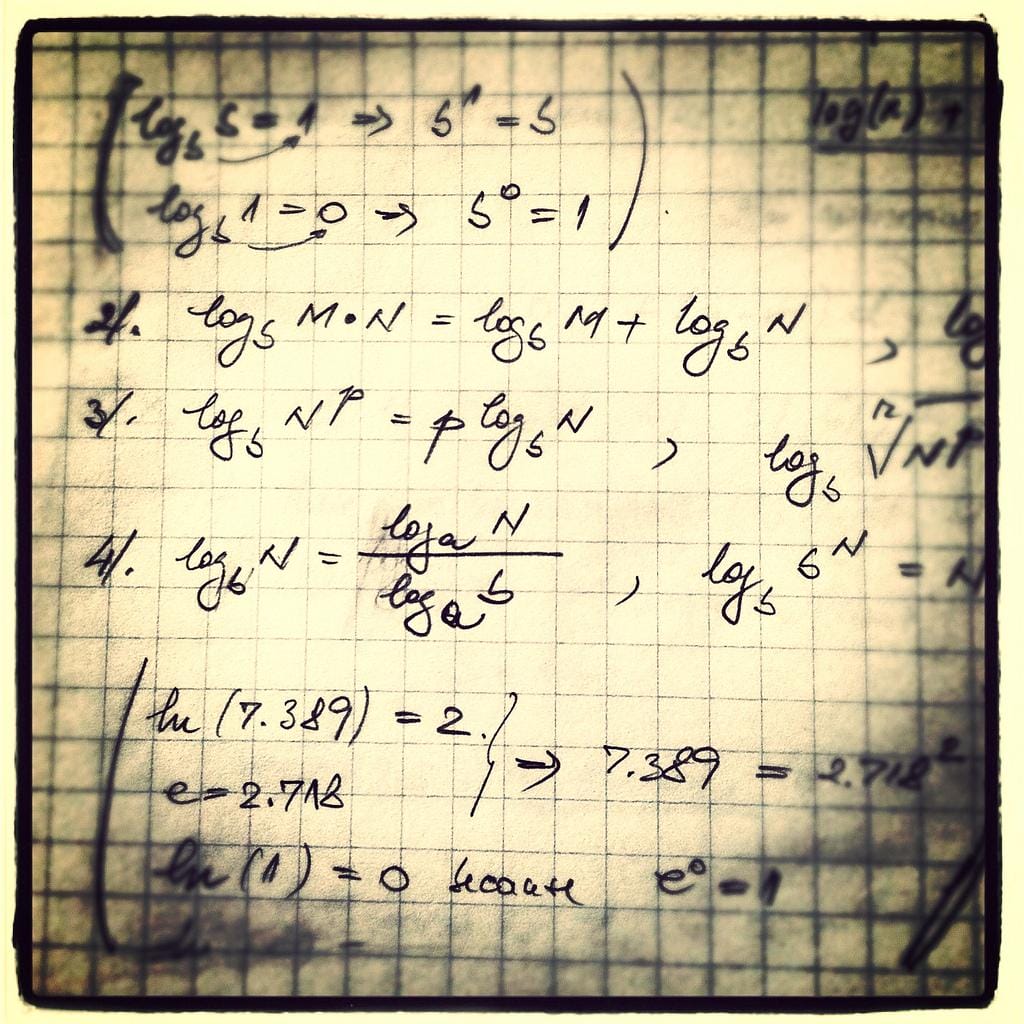 log_b b = 1 ⇒ b^1 = b
log(x) +
log_b 1 = 0 ⇒ b^0 = 1
2/. log_b M•N = log_b M + log_b N , log
3/. log_b N^p = p log_b N , log_b ⁿ√N^p
4/. log_b N = log_a N / log_a b , log_b b^N = N
ln (7.389) = 2. } ⇒ 7.389 = 2.718^2
e = 2.718
ln (1) = 0 because e^0 = 1